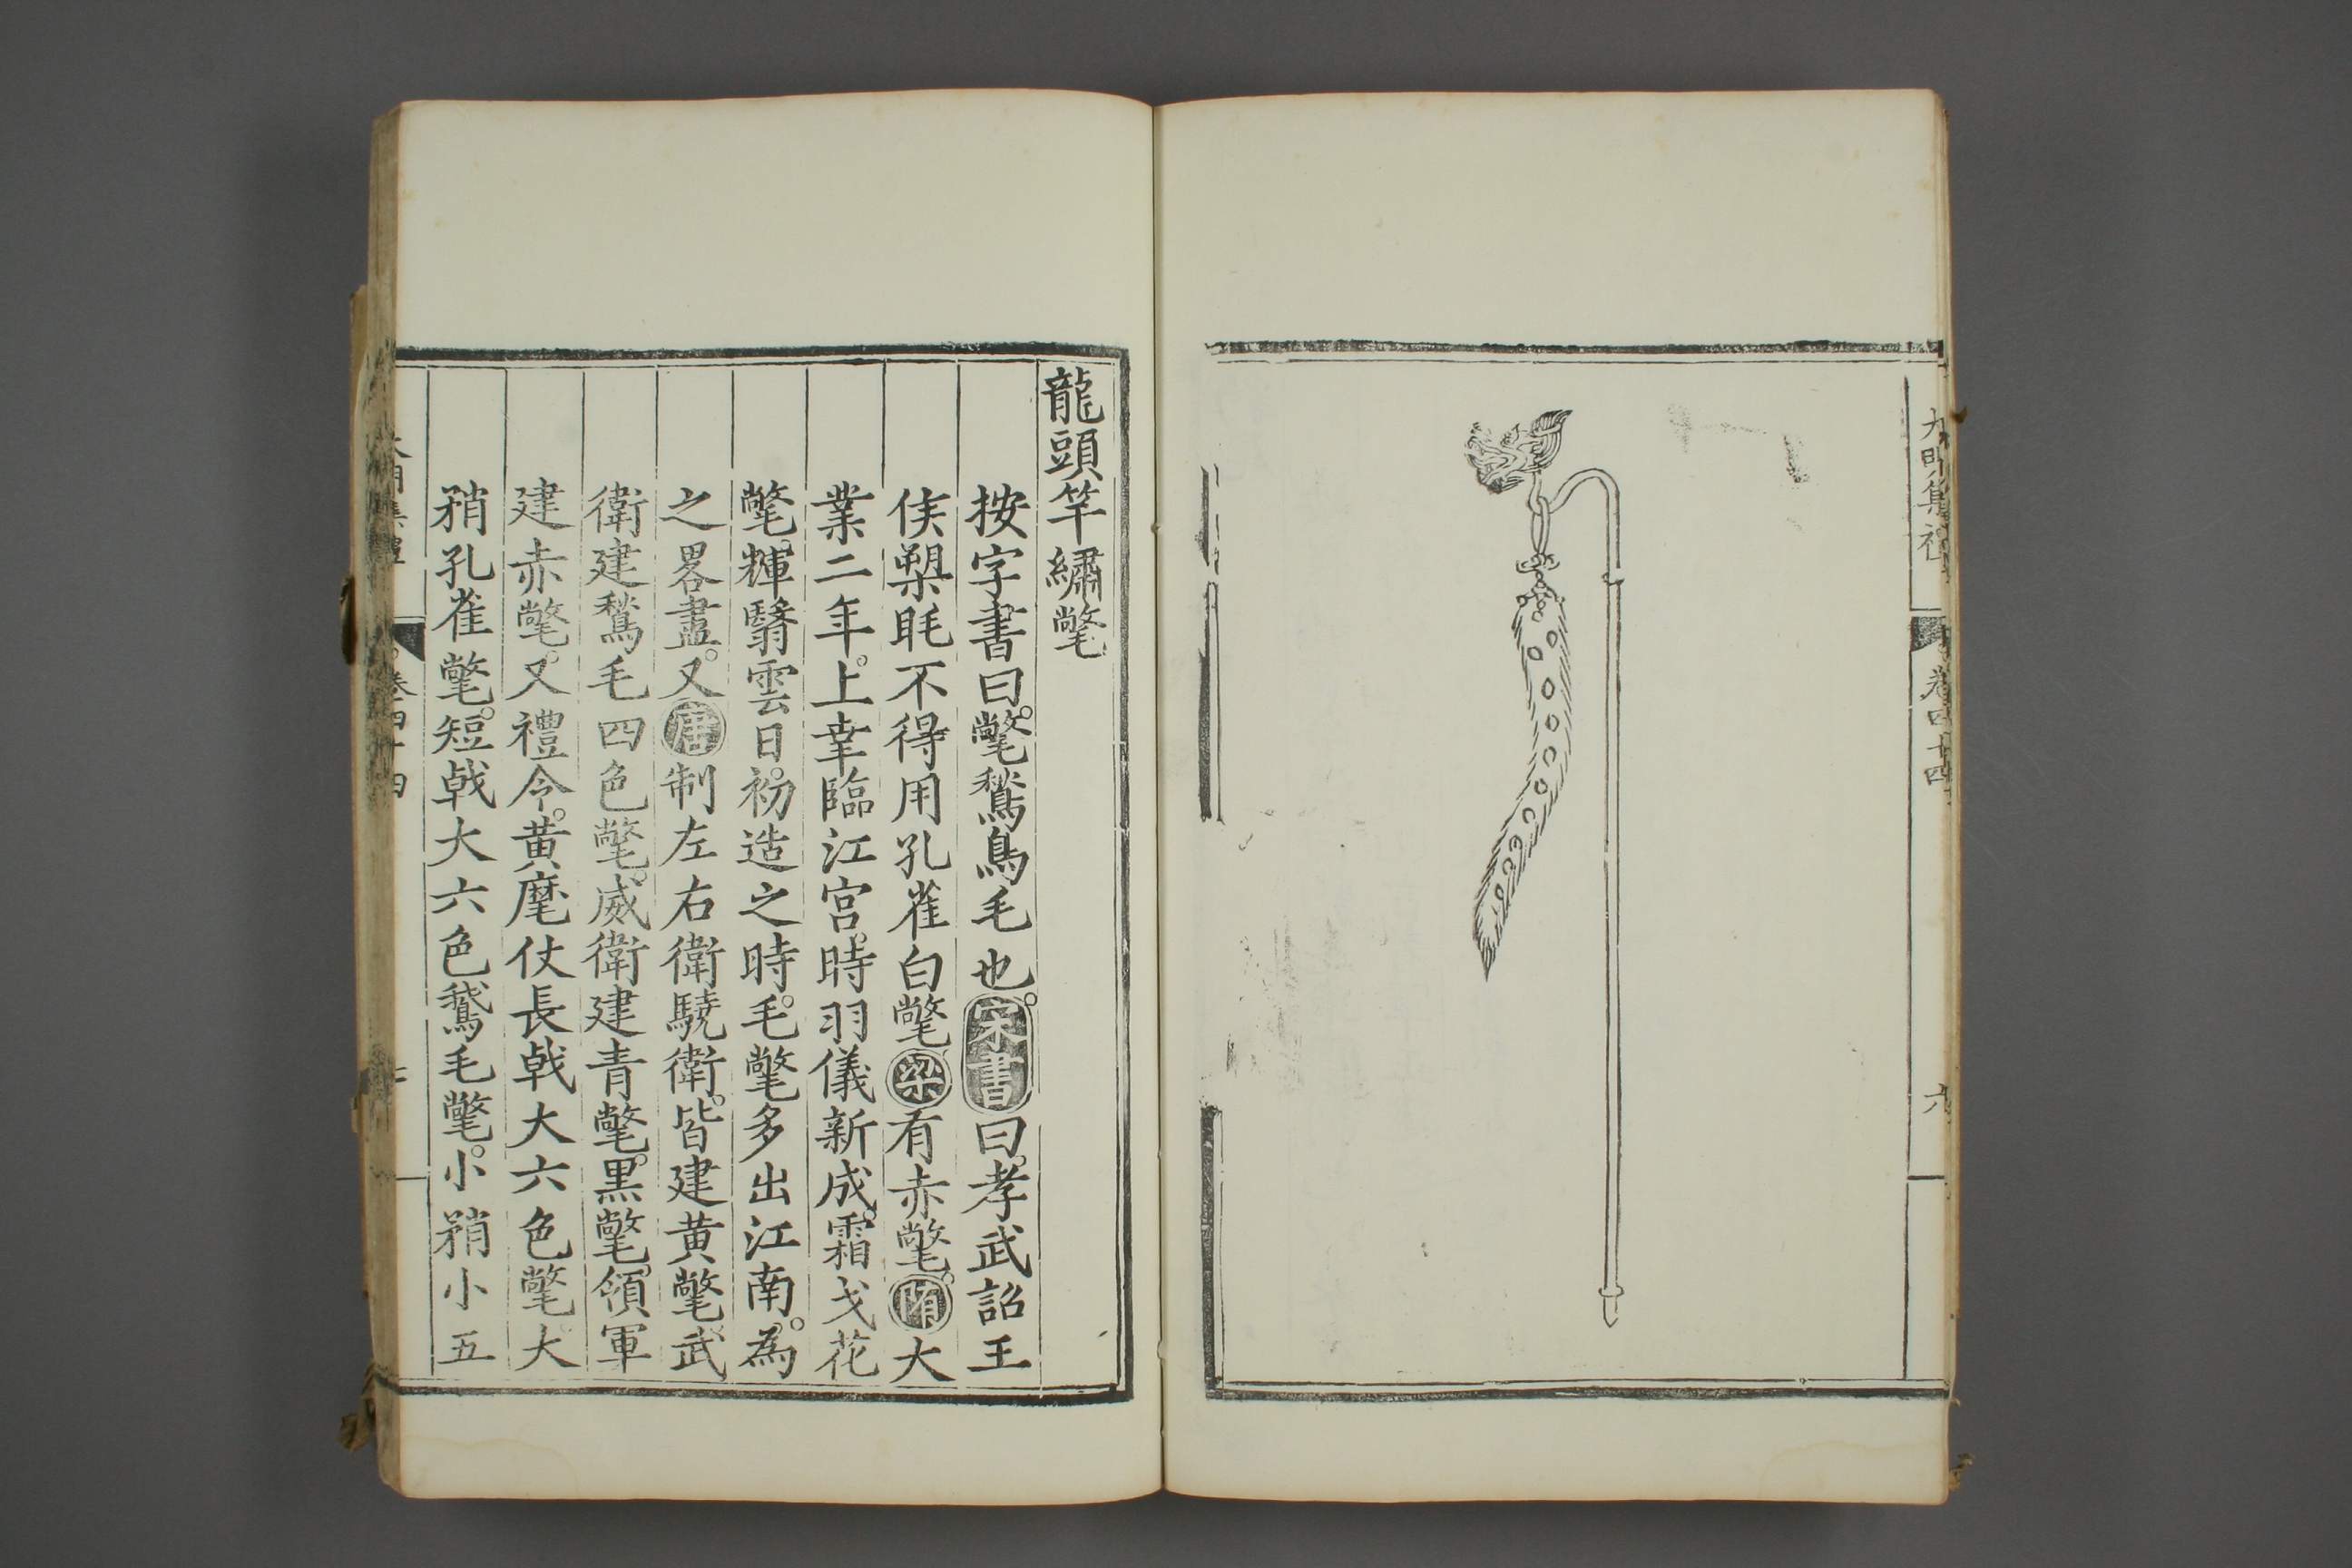 大明集禮
卷四十四
六
龍頭竿繡氅
按字書曰。氅鶖鳥毛也。宋書曰。孝武詔王
侯槊毦不得用孔雀白氅。梁有赤氅。隋大
業二年。上幸臨江宮。時羽儀新成。霜戈花
氅。輝翳雲日。初造之時。毛氅多出江南。為
之畧盡。又唐制左右衛驍衛。皆建黃氅。武
衛建鶖毛四色氅。威衛建青氅。黑氅。領軍
建赤氅。又禮令。黃麾仗長戟大六色氅。大
矟孔雀氅。短戟大六色鵞毛氅。小矟小五
大明集禮
卷四十四